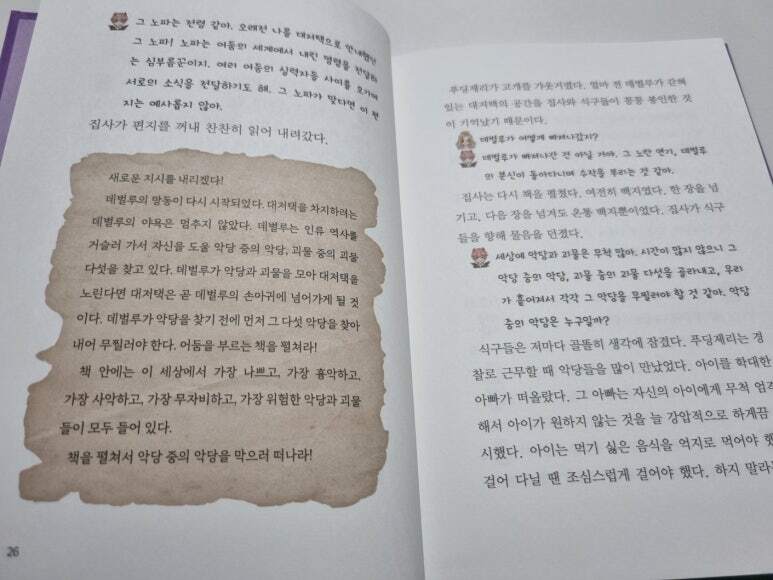 그 노파는 전령 같아. 오래전 나를 대저택으로 안내했던
그 노파! 노파는 어둠의 세계에서 내린 명령을 전달하
는 심부름꾼이지. 여러 어둠의 실력자들 사이를 오가며
서로의 소식을 전달하기도 해. 그 노파가 맞다면 이 편
지는 예사롭지 않아.
집사가 편지를 꺼내 찬찬히 읽어 내려갔다.
새로운 지시를 내리겠다!
데벌루의 망동이 다시 시작되었다. 대저택을 차지하려는
데벌루의 야욕은 멈추지 않았다. 데벌루는 인류 역사를
거슬러 가서 자신을 도울 악당 중의 악당, 괴물 중의 괴물
다섯을 찾고 있다. 데벌루가 악당과 괴물을 모아 대저택을
노린다면 대저택은 곧 데벌루의 손아귀에 넘어가게 될 것
이다. 데벌루가 악당을 찾기 전에 먼저 그 다섯 악당을 찾아
내어 무찔러야 한다. 어둠을 부르는 책을 펼쳐라!
책 안에는 이 세상에서 가장 나쁘고, 가장 흉악하고,
가장 사악하고, 가장 무자비하고, 가장 위험한 악당과 괴물
들이 모두 들어 있다.
책을 펼쳐서 악당 중의 악당을 막으러 떠나라!
26
푸딩제리가 고개를 갸웃거렸다. 얼마 전 데벌루가 갇혀
있는 대저택의 공간을 집사와 식구들이 꽁꽁 봉인한 것
이 기억났기 때문이다.
데벌루가 어떻게 빠져나갔지?
데벌루가 빠져나간 건 아닐 거야. 그 노란 연기, 데벌루
의 분신이 돌아다니며 수작을 부리는 것 같아.
집사는 다시 책을 펼쳤다. 여전히 백지였다. 한 장을 넘
기고, 다음 장을 넘겨도 온통 백지뿐이었다. 집사가 식구
들을 향해 물음을 던졌다.
세상에 악당과 괴물은 무척 많아. 시간이 많지 않으니 그
악당 중의 악당, 괴물 중의 괴물 다섯을 골라내고, 우리
가 흩어져서 각각 그 악당을 무찔러야 할 것 같아. 악당
중의 악당은 누구일까?
식구들은 저마다 골똘히 생각에 잠겼다. 푸딩제리는 경
찰로 근무할 때 악당들을 많이 만났었다. 아이를 학대한
아빠가 떠올랐다. 그 아빠는 자신의 아이에게 무척 엄격
해서 아이가 원하지 않는 것을 늘 강압적으로 하게끔
시켰다. 아이는 먹기 싫은 음식을 억지로 먹어야 했
걸어 다닐 땐 조심스럽게 걸어야 했다. 하지 말라